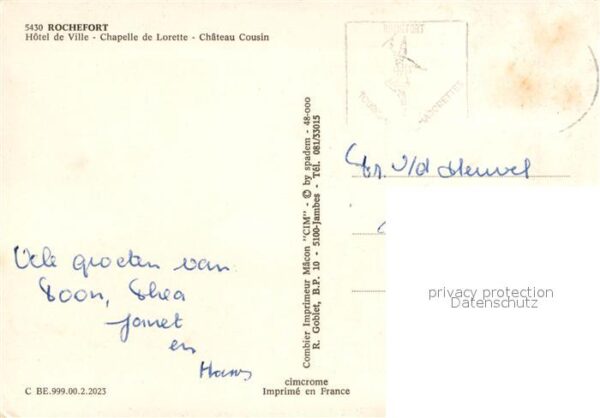 5430 ROCHEFORT
Hôtel de Ville - Chapelle de Lorette - Château Cousin
ROCHEFORT
Vele groeten van
Toon, Thea
Jonet
en
Hans
C BE.999.00.2.2023
Combier Imprimeur Mâcon "CIM" - © by spadem - 48-000
R. Goblet, B.P. 10 - 5100-Jambes - Tél. 081/33015
cimcrome
Imprimé en France
v/d Heuvel
privacy protection
Datenschutz